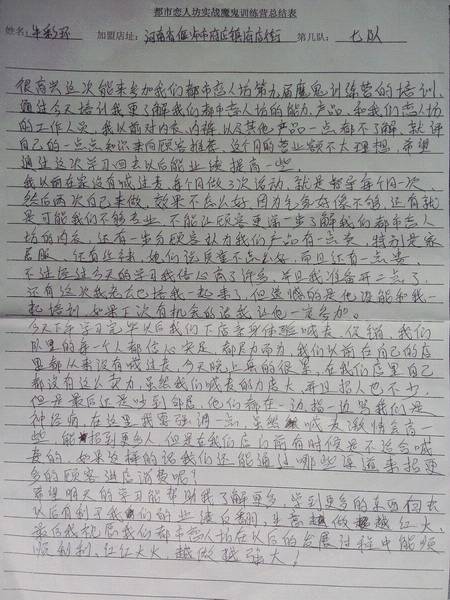 都市恋人坊实战魔鬼训练营总结表
姓名: 牛彩环 加盟店址: 河南省偃师市府店镇府店街 第几队: 七队
很高兴这次能来参加我们都市恋人坊第九届魔鬼训练营的培训,
通过今天培训我更了解我们都市恋人坊的能力,产品,和我们恋人坊
的工作人员,我以前对内衣,内裤,以及其他产品一点都不了解,就凭
自己的一点点知识来向顾客推荐,这个月的营业额不太理想,希望
通过这次学习回去以后能业绩提高一些,
我以前在家没有喊过麦,每个月做3次活动,就是督导每个月一次,
然后两次自己来做,效果不怎么好,因为气氛好像不够,还有就
是可能我们不够专业,不能让顾客更深一步了解我们都市恋人
坊的内衣,还有一部分顾客认为我们产品有一点贵,特别是家
居服,还有丝袜,她们说质量不怎么好,而且还有一点贵,
不过经过今天的学习我信心有了许多,并且我准备开二店了,
还有这次我老公也陪我一起来了,但遗憾的是他没能和我一
起培训,如果下次有机会的话我让他一定参加。
今天下午学习完毕以后我们下店亲身体验喊麦,促销,我们
队里的每一个人都信心实足,都尽力而为,我们以前在自己的店
里都从来没有喊过麦,今天晚上真的很累,在我们店里自己
都没有这么卖力,虽然我们喊麦的力度大,并且招人也不少,
但是最后还是吵到邻居,他们都在一边指一边骂我们是
神经病,在这里我要强调一点,虽然喊麦激情会高一
些,能招到更多人,但是在我们店门前有时候是不适合喊
麦的,如果这样的话我们还能通过哪些渠道来招更
多的顾客进店消费呢?
希望明天的学习能帮助我了解更多,学到更多的东西回去
以后有利于我们的业绩白翻,生意越做越红火,
最后我祝愿我们都市恋人坊在以后的发展过程中能顺
顺利利,红红火火,越做越强大!